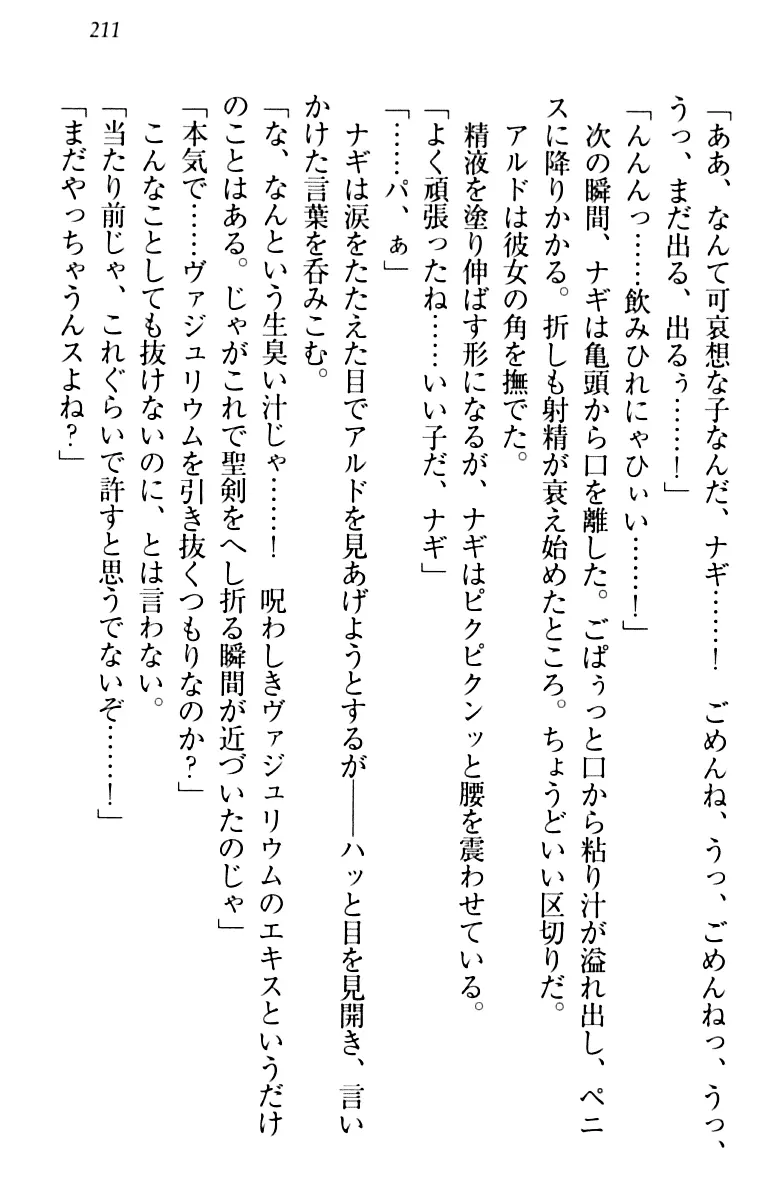 211
「ああ、なんて可哀想な子なんだ、ナギ……！　ごめんね、うっ、ごめんねっ、うっ、
うっ、まだ出る、出るぅ……！」
「んんんっ……飲みひれにゃひぃい……！」
　次の瞬間、ナギは亀頭から口を離した。ごぱぅっと口から粘り汁が溢れ出し、ペニ
スに降りかかる。折しも射精が衰え始めたところ。ちょうどいい区切りだ。
　アルドは彼女の角を撫でた。
　精液を塗り伸ばす形になるが、ナギはピクピクンッと腰を震わせている。
「よく頑張ったね……いい子だ、ナギ」
「……パ、ぁ」
　ナギは涙をたたえた目でアルドを見あげようとするが――ハッと目を見開き、言い
かけた言葉を呑みこむ。
「な、なんという生臭い汁じゃ……！　呪わしきヴァジュリウムのエキスというだけ
のことはある。じゃがこれで聖剣をへし折る瞬間が近づいたのじゃ」
「本気で……ヴァジュリウムを引き抜くつもりなのか？」
　こんなことしても抜けないのに、とは言わない。
「当たり前じゃ、これぐらいで許すと思うでないぞ……！」
「まだやっちゃうんスよね？」